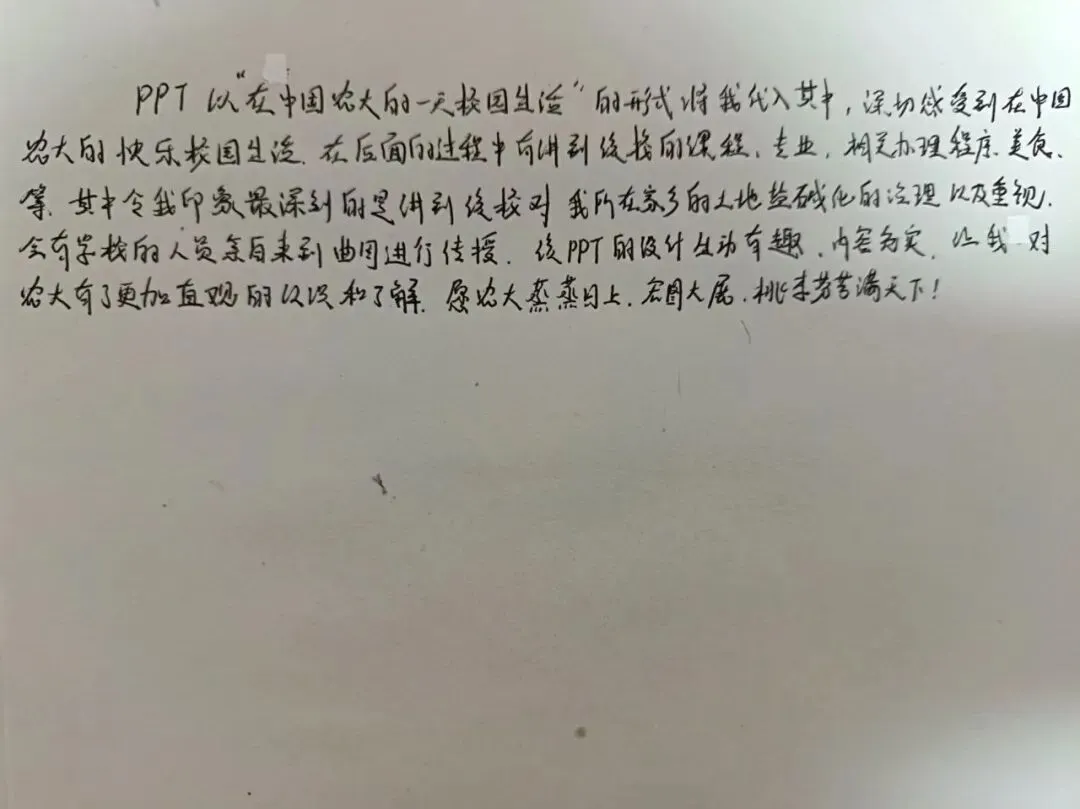 PPT 以“在中国农大的一天校园生活”的形式将我代入其中，深切感受到在中国
农大的快乐校园生活。在后面的过程中有讲到该校的课程、专业，相关办理程序、美食、
等。其中令我印象最深刻的是讲到该校对我所在家乡的土地盐碱化的治理以及重视，
会有学校的人员亲自来到曲周进行传授。该PPT的设计生动有趣，内容充实，让我对
农大有了更加直观的认识和了解。愿农大蒸蒸日上，宏图大展，桃李芬芳满天下！